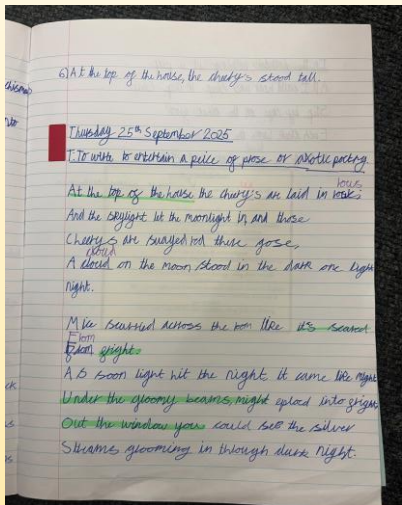 chismas
nto
6) At the top of the house, the cheery's stood tall.
Thursday 25th September 2025
T: To write to entertain a peice of prose or poetry
rous
At the top of the house the cheery's are laid in
And the skylight let the moonlight in, and those
Cheery s are suayed rod these gose,
cloud
A cloud on the moon stood in the dark one light
night.
Mice scurried across the like its scared
From
gright.
As soon light hit the night it came like might
Under the gloony beams, might eplood into gright
Out the window you could see the silver
Streams glooming in through dark night.
ck